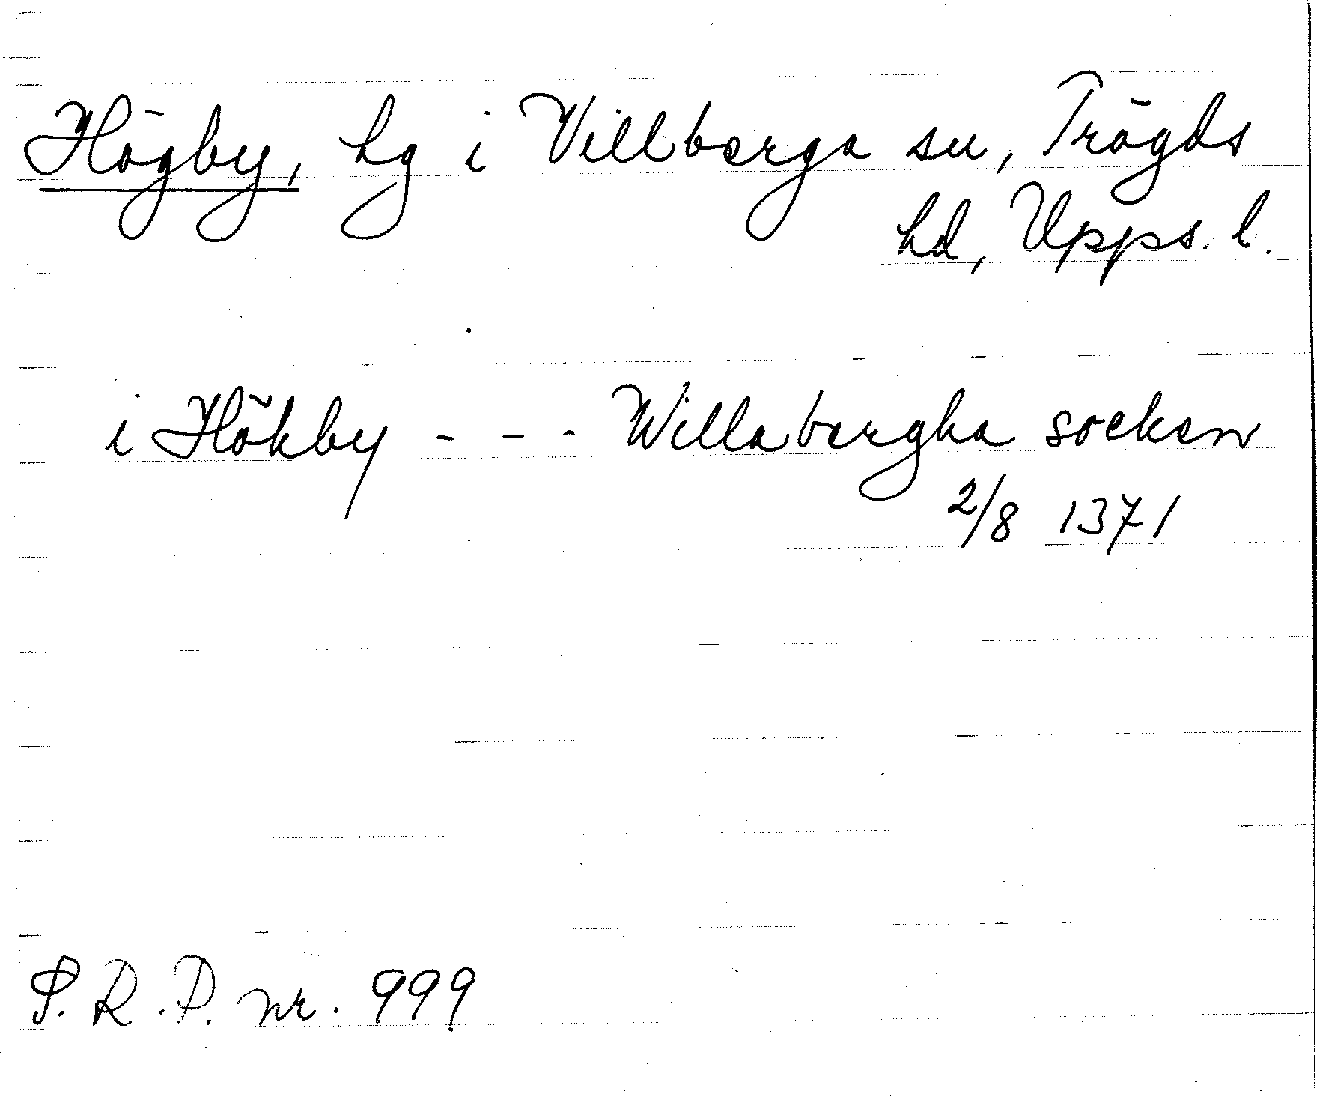 Högby, hg i Villberga sn, Trögds
hd, Upps. l.
i Hökby - - - Willabergha socken
2/8 1371
S. R. P. nr. 999